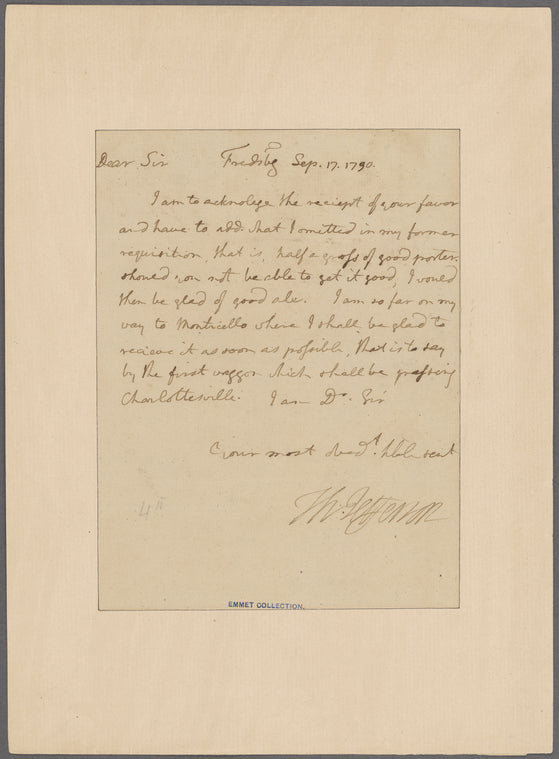 Dear Sir Fredsbg Sep. 17. 1790.
I am to acknolege the reciept of your favor
and have to add that I omitted in my former
requisition, that is, half a gross of good porter.
should you not be able to get it good, I would
then be glad of good ale. I am so far on my
way to Monticello where I shall be glad to
recieve it as soon as possible, that is to say
by the first waggon which shall be passing
Charlottesville. I am Dr. Sir
your most obedt. hble servt
Th: Jefferson
EMMET COLLECTION.